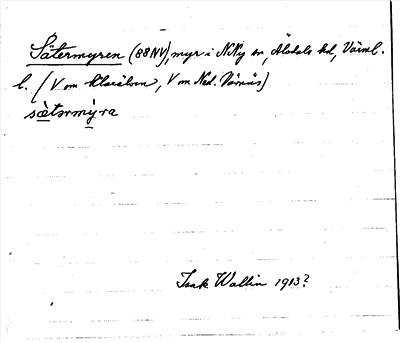 Sätermyren (88 NV), myr i N.Ny sn, Älvdals hd, Värml.
l. (V om Klarälven, V om Ned. Värnäs)
sætərmỳra
Isak Wallin 1913?